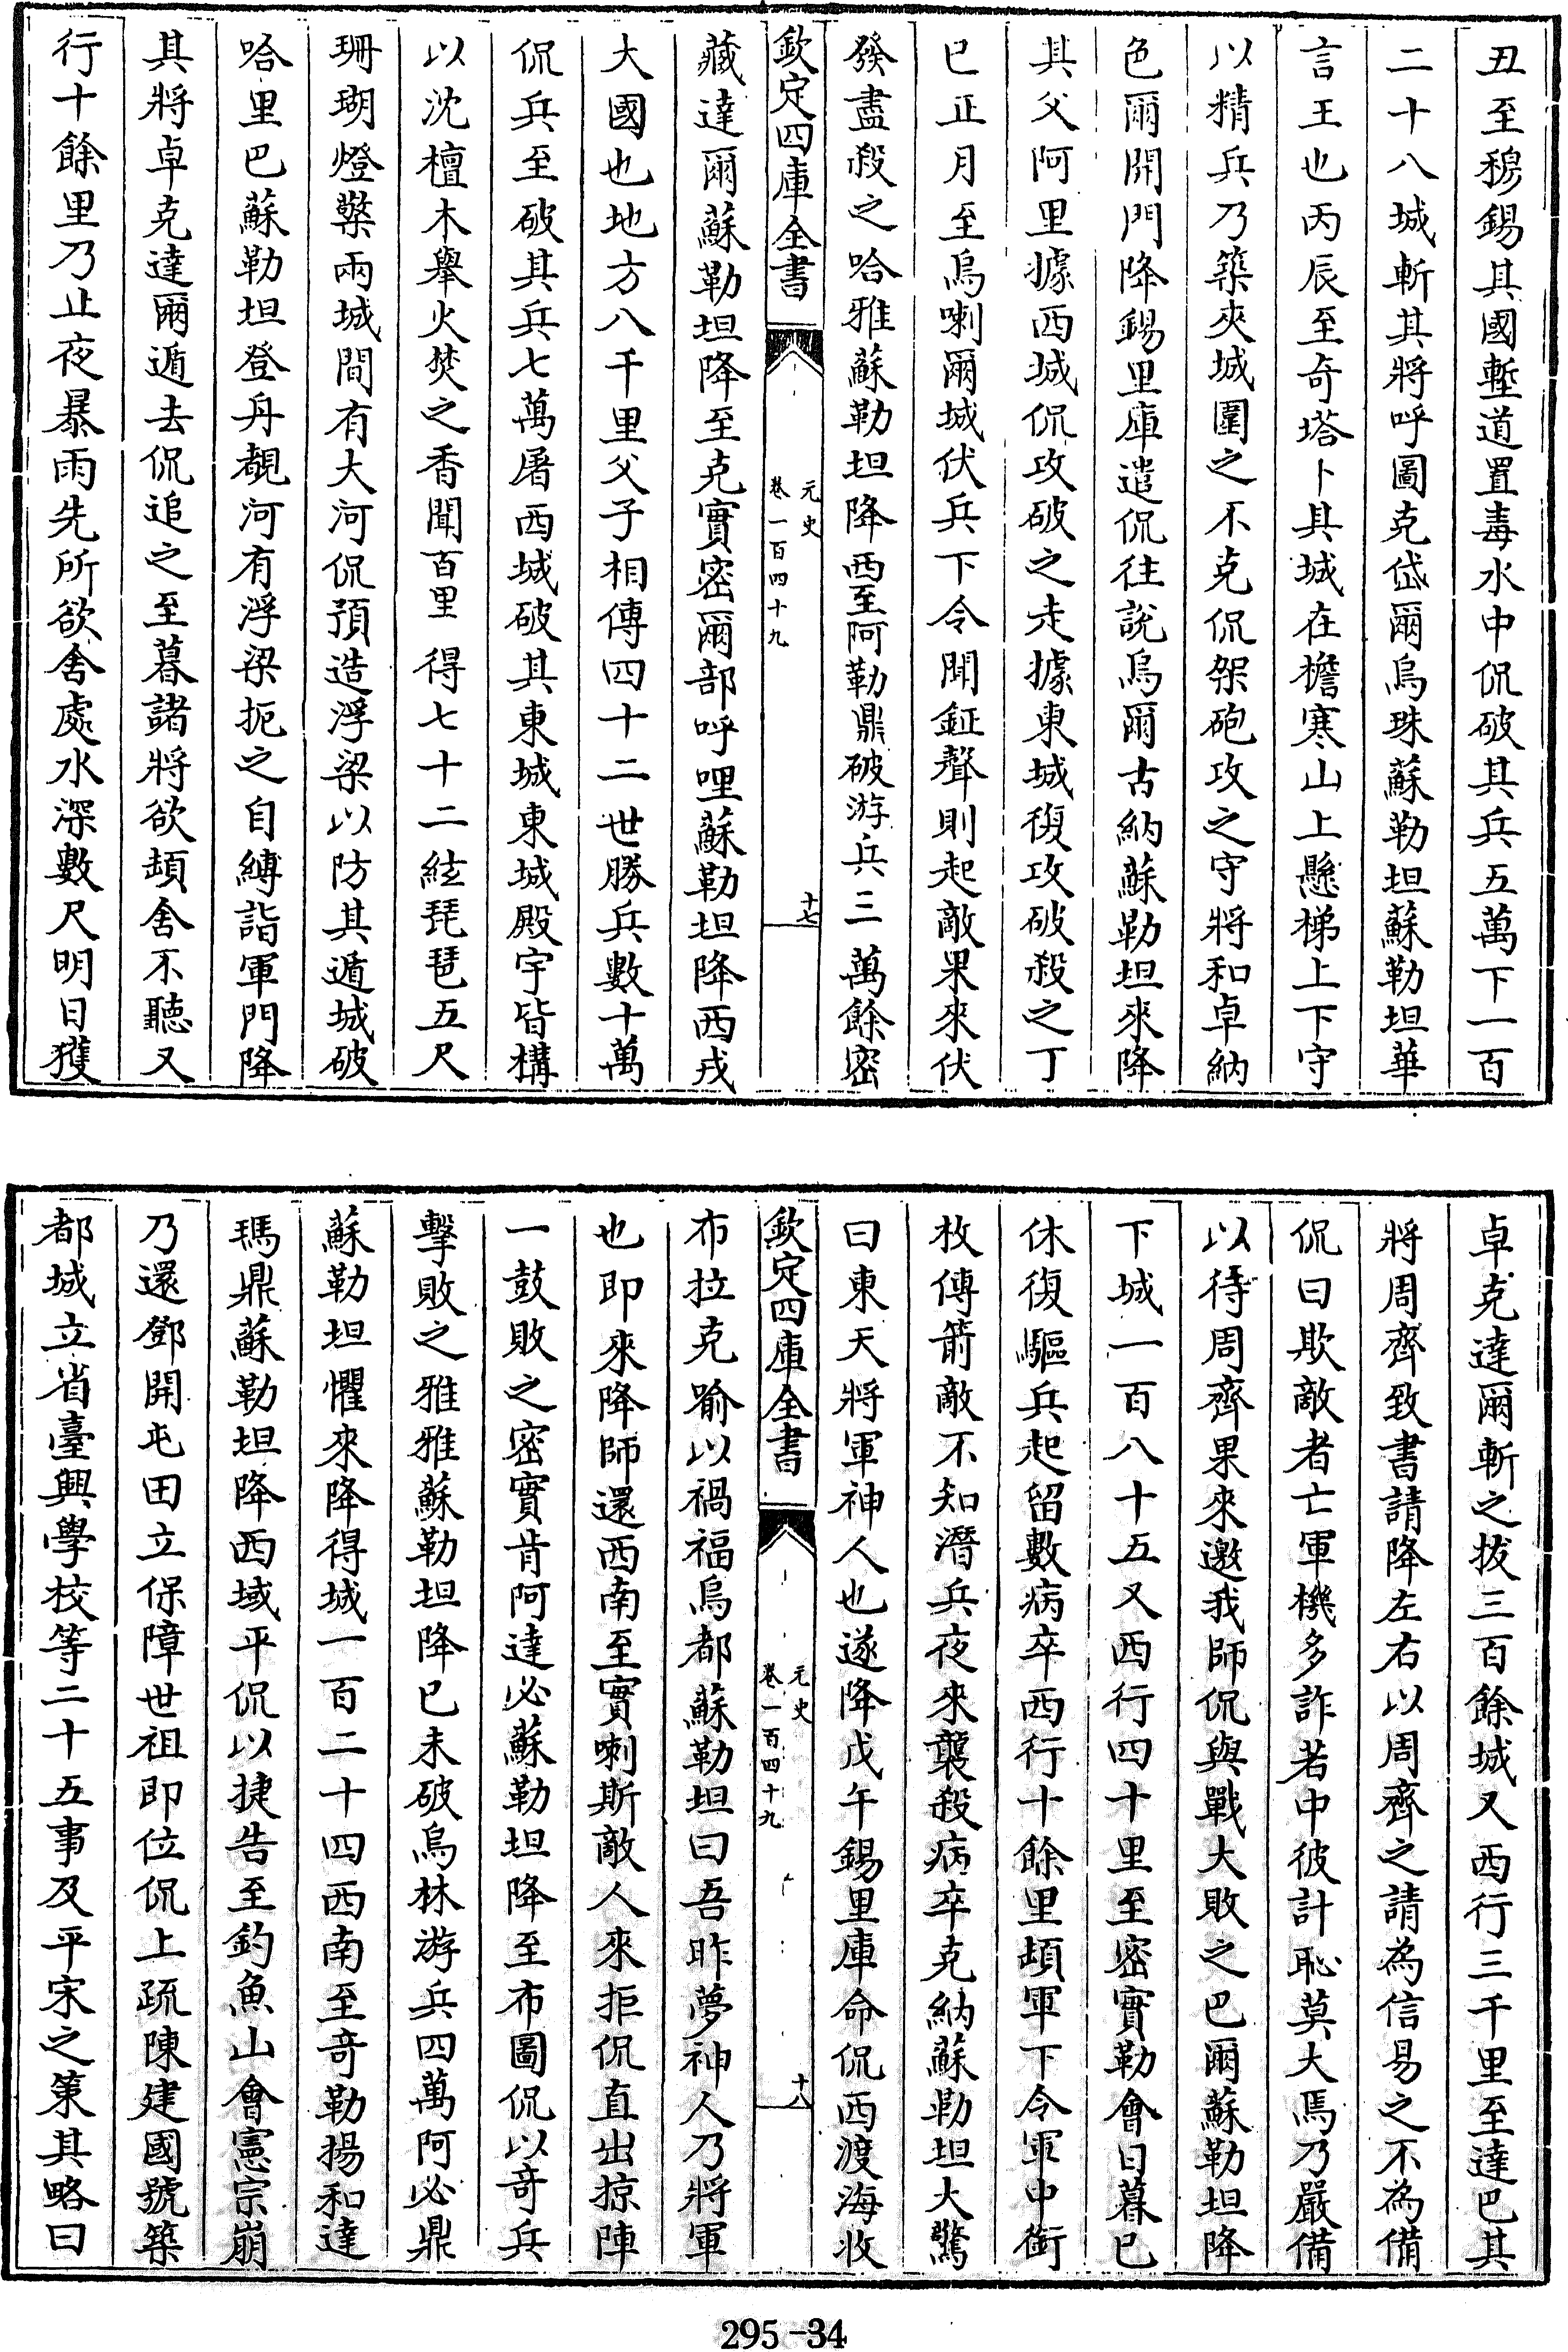 丑至穆錫其國塹道置毒水中侃破其兵五萬下一百
二十八城斬其將呼圖克岱爾烏珠蘇勒坦蘇勒坦華
言王也丙辰至奇塔卜其城在檐寒山上懸梯上下守
以精兵乃築夾城圍之不克侃架砲攻之守將和卓納
色爾開門降錫里庫遣侃往說烏爾古納蘇勒坦來降
其父阿里據西城侃攻破之走據東城復攻破殺之丁
巳正月至烏喇爾城伏兵下令聞鉦聲則起敵果來伏
發盡殺之哈雅蘇勒坦降西至阿勒鼎破游兵三萬餘密
欽定四庫全書
元史
卷一百四十九
十七
藏達爾蘇勒坦降至克實密爾部呼哩蘇勒坦降西戎
大國也地方八千里父子相傳四十二世勝兵數十萬
侃兵至破其兵七萬屠西城破其東城東城殿宇皆構
以沈檀木舉火焚之香聞百里得七十二絃琵琶五尺
珊瑚燈檠兩城間有大河侃預造浮梁以防其遁城破
哈里巴蘇勒坦登丹覩河有浮梁扼之自縛詣軍門降
其將卓克達爾遁去侃追之至暮諸將欲頓舍不聽又
行十餘里乃止夜暴雨先所欲舍處水深數尺明日獲
卓克達爾斬之拔三百餘城又西行三千里至達巴其
將周齊致書請降左右以周齊之請為信易之不為備
侃曰欺敵者亡軍機多詐若中彼計恥莫大焉乃嚴備
以待周齊果來邀我師侃與戰大敗之巴爾蘇勒坦降
下城一百八十五又西行四十里至密實勒會日暮已
休復驅兵起留數病卒西行十餘里頓軍下令軍中銜
枚傳箭敵不知潛兵夜來襲殺病卒克納蘇勒坦大驚
曰東天將軍神人也遂降戊午錫里庫命侃西渡海收
欽定四庫全書
元史
卷一百四十九
十八
布拉克喻以禍福烏都蘇勒坦曰吾昨夢神人乃將軍
也即來降師還西南至實喇斯敵人來拒侃直出掠陣
一鼓敗之密實肯阿達必蘇勒坦降至布圖侃以奇兵
擊敗之雅雅蘇勒坦降已未破烏林游兵四萬阿必鼎
蘇勒坦懼來降得城一百二十四西南至奇勒揚和達
瑪鼎蘇勒坦降西域平侃以捷告至釣魚山會憲宗崩
乃還鄧開屯田立保障世祖即位侃上疏陳建國號築
都城立省臺興學校等二十五事及平宋之策其略曰
295-34